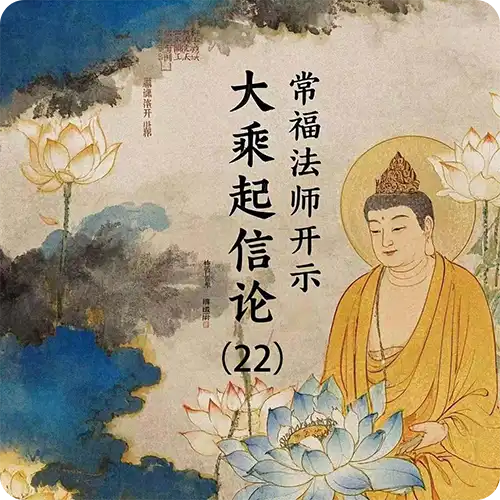 常福法师开示
大乘起信论
(22)